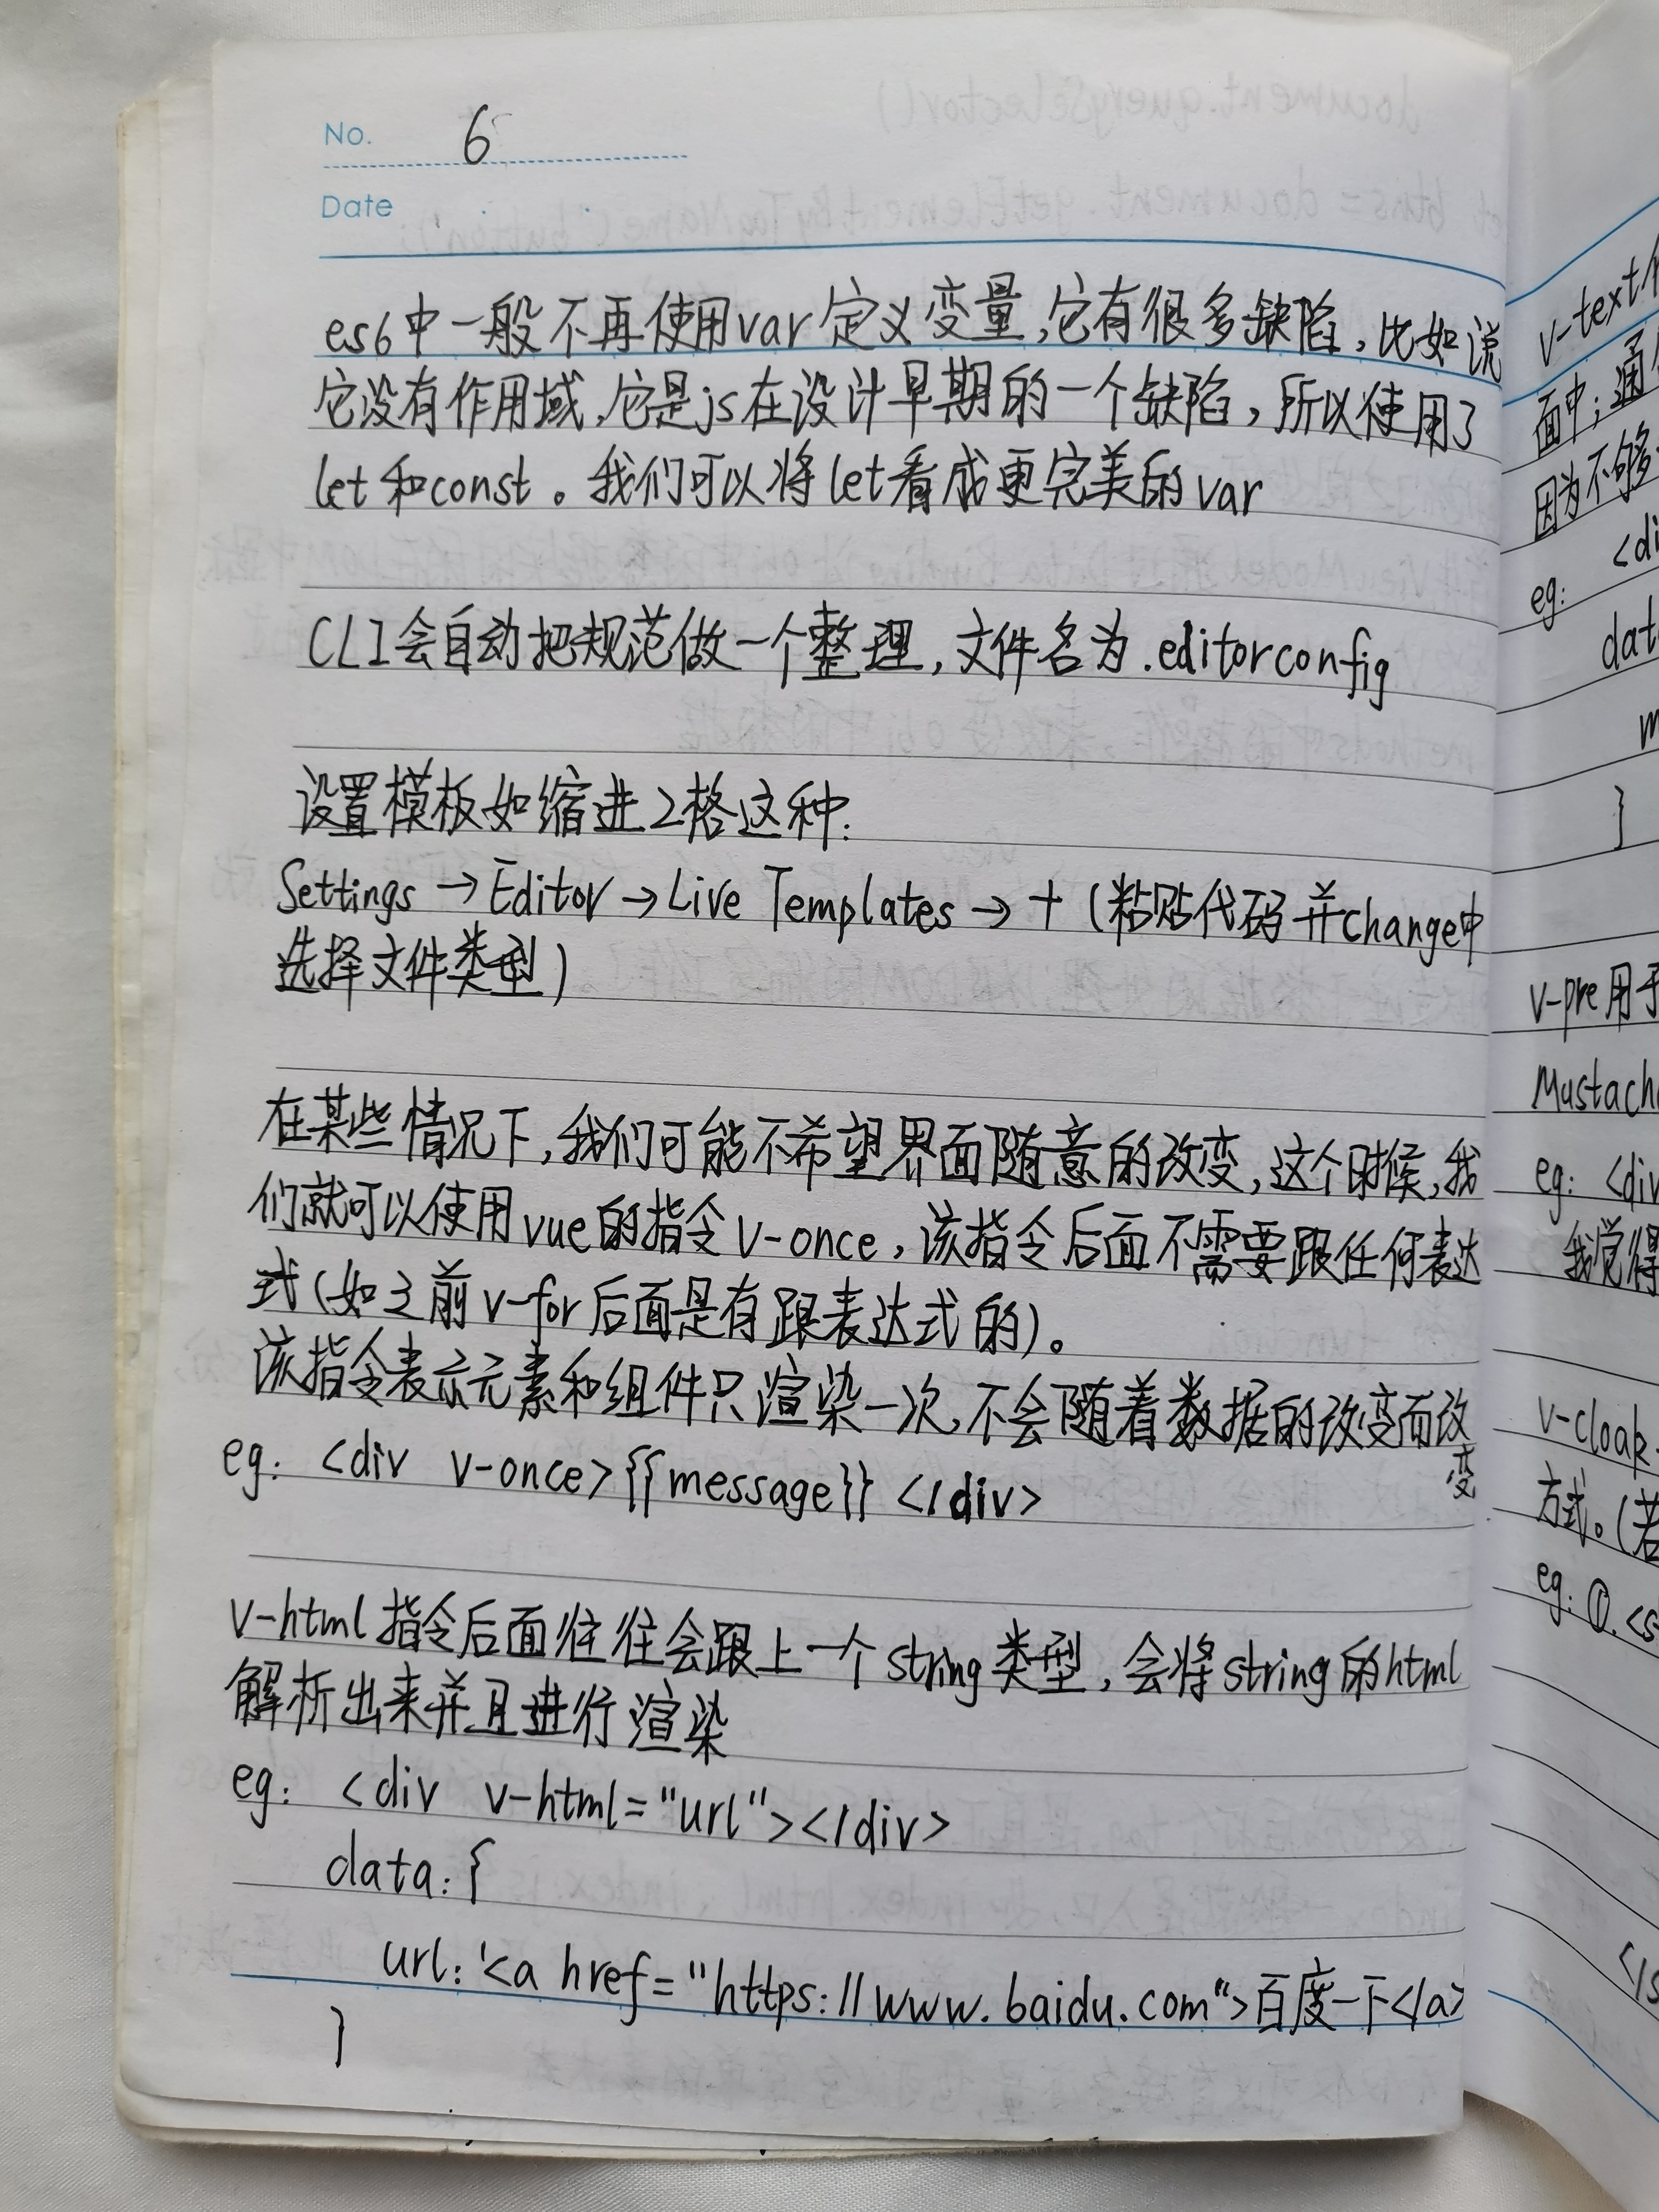 No. 6
Date
es6中一般不再使用var定义变量,它有很多缺陷,比如说
它没有作用域,它是js在设计早期的一个缺陷,所以使用了
let和const。我们可以将let看成更完美的var
CLI会自动把规范做一个整理,文件名为.editorconfig
设置模板如缩进2格这种:
Settings→Editor→Live Templates→+(粘贴代码并change中
选择文件类型)
在某些情况下,我们可能不希望界面随意的改变,这个时候,我
们就可以使用vue的指令v-once,该指令后面不需要跟任何表达
式(如之前v-for后面是有跟表达式的)。
该指令表示元素和组件只渲染一次,不会随着数据的改变而改
变
eg: <div v-once>{{message}}</div>
v-html指令后面往往会跟上一个string类型,会将string的html
解析出来并且进行渲染
eg: <div v-html="url"></div>
data:{
url:'<a href="https://www.baidu.com">百度一下</a>
}
v-text
面中;通
因为不够
eg: <di
dat
m
}
v-pre用于
Mustach
eg: <div
我觉得
v-cloak
方式。(若
eg:①.<s
</s